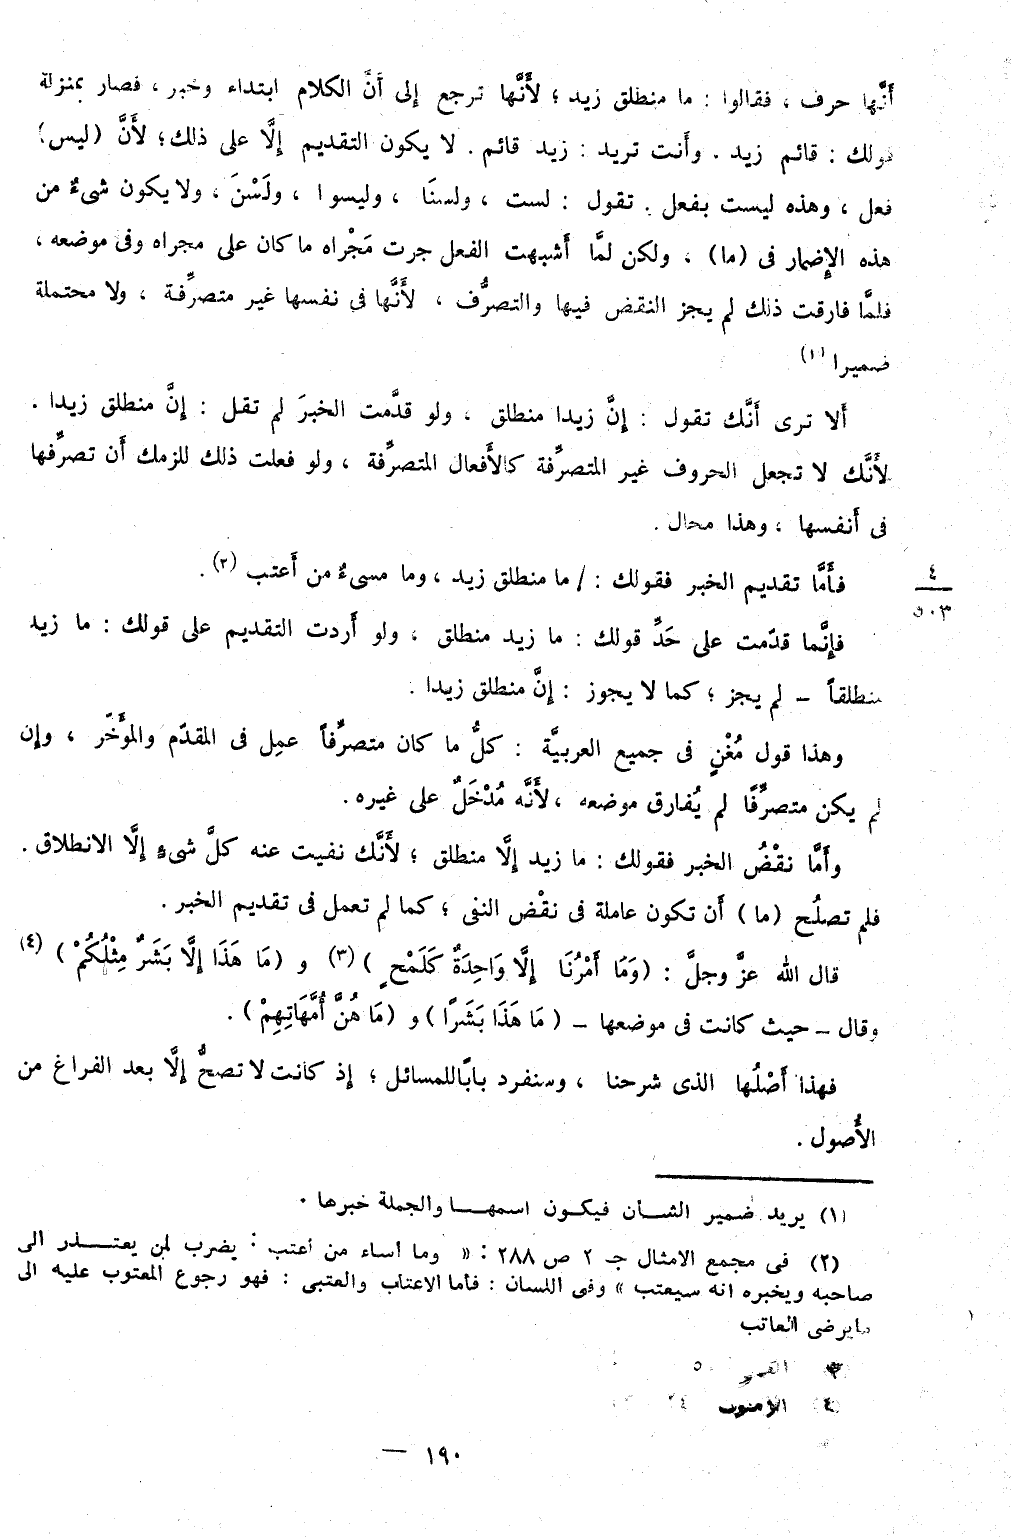 أَنَّها حرف ، فقالوا : ما منطلق زيد ؛ لأَنَّها ترجع إلى أَنَّ الكلام ابتداء وخبر ، فصار بمنزلة
قولك : قائم زيد . وأَنت تريد : زيد قائم . لا يكون التقديم إلَّا على ذلك ؛ لأَنَّ (ليس)
فعل ، وهذه ليست بفعل . تقول : لست ، ولسنَا ، وليسوا ، ولَسْنَ ، ولا يكون شىءٌ من
هذه الإضمار فى (ما) ، ولكن لمَّا أَشبهت الفعل جرت مَجْراه ما كان على مجراه وفى موضعه ،
فلمَّا فارقت ذلك لم يجز النقض فيها والتصرُّف ، لأَنَّها فى نفسها غير متصرِّفة ، ولا محتملة
ضميرا (١)
أَلا ترى أَنَّك تقول : إنَّ زيدا منطلق ، ولو قدَّمت الخبرَ لم تقل : إنَّ منطلق زيدا .
لأَنَّك لا تجعل الحروف غير المتصرِّفة كالأَفعال المتصرِّفة ، ولو فعلت ذلك للزمك أَن تصرِّفها
فى أَنفسها ، وهذا محال .
فأَمَّا تقديم الخبر فقولك : / ما منطلق زيد ، وما مسىءٌ من أَعتب (٢) .
٤
٥٠٣
فإِنَّما قدّمت على حَدِّ قولك : ما زيد منطلق ، ولو أَردت التقديم على قولك : ما زيد
منطلقاً – لم يجز ؛ كما لا يجوز : إنَّ منطلق زيدا .
وهذا قول مُغْنٍ فى جميع العربيَّة : كلُّ ما كان متصرِّفاً عمِل فى المقدّم والمؤَخَّر ، وإن
لم يكن متصرِّفًا لم يُفارق موضعه ، لأَنَّه مُدْخَلٌ على غيره .
وأَمَّا نقْضُ الخبر فقولك : ما زيد إلَّا منطلق ؛ لأَنَّك نفيت عنه كلَّ شىءٍ إلَّا الانطلاق .
فلم تصلُح (ما) أَن تكون عاملة فى نقْض النفى ؛ كما لم تعمل فى تقديم الخبر .
قال الله عزَّ وجلَّ : (وَمَا أَمْرُنَا إِلَّا وَاحِدَةٌ كَلَمْحٍ) (٣) و (مَا هَذَا إلَّا بَشَرٌ مِثْلُكُمْ) (٤)
وقال – حيث كانت فى موضعها – (مَا هَذَا بَشَرًا) و (مَا هُنَّ أُمَّهَاتِهِمْ) .
فهذا أَصْلُها الذى شرحنا ، وسنفرد بابًا للمسائل ؛ إذ كانت لا تصحُّ إلَّا بعد الفراغ من
الأُصول .
(١) يريد ضمير الشأن فيكون اسمها والجملة خبرها .
(٢) فى مجمع الامثال جـ ٢ ص ٢٨٨ : « وما أساء من أعتب : يضرب لمن يعتذر الى
صاحبه ويخبره انه سيعتب » وفى اللسان : فأما الاعتاب والعتبى : فهو رجوع المعتوب عليه الى
مايرضى العاتب
(٤) المؤمنون ٢٤
١٩٠ —